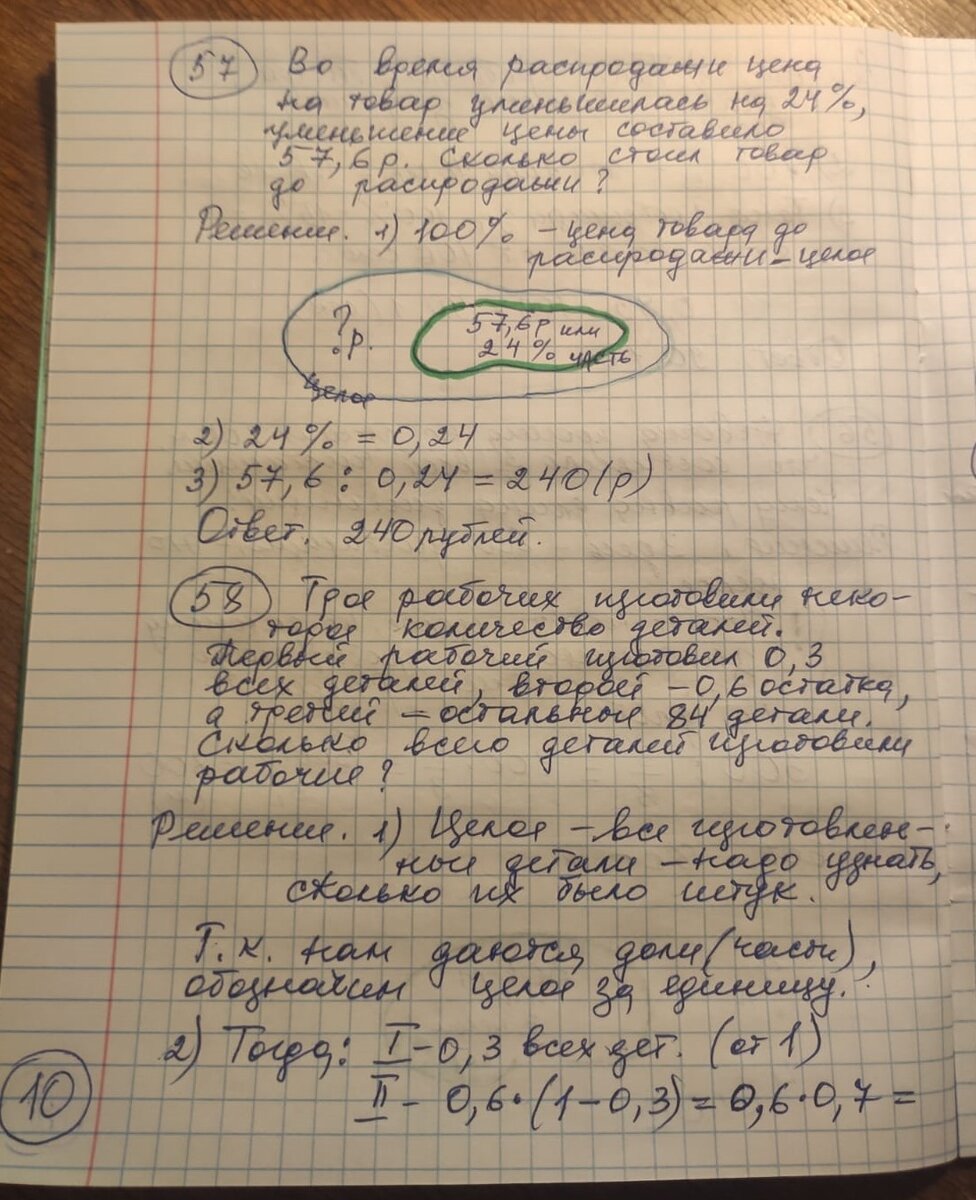 57 Во время распродажи цена
на товар уменьшилась на 24%,
уменьшение цены составило
57,6р. Сколько стоил товар
до распродажи?
Решение. 1) 100% – цена товара до
распродажи – целое
? р. 57,6р или
24% часть
целое
2) 24% = 0,24
3) 57,6 : 0,24 = 240(р)
Ответ. 240 рублей.
58 Трое рабочих изготовили неко-
торое количество деталей.
Первый рабочий изготовил 0,3
всех деталей, второй – 0,6 остатка,
а третий – остальные 84 детали.
Сколько всего деталей изготовили
рабочие?
Решение. 1) Целое – все изготовлен-
ные детали – надо узнать,
сколько их было штук.
Т.к. нам даются доли (части),
обозначим целое за единицу.
2) Тогда: I – 0,3 всех дет. (от 1)
II – 0,6·(1–0,3) = 0,6·0,7 =
10